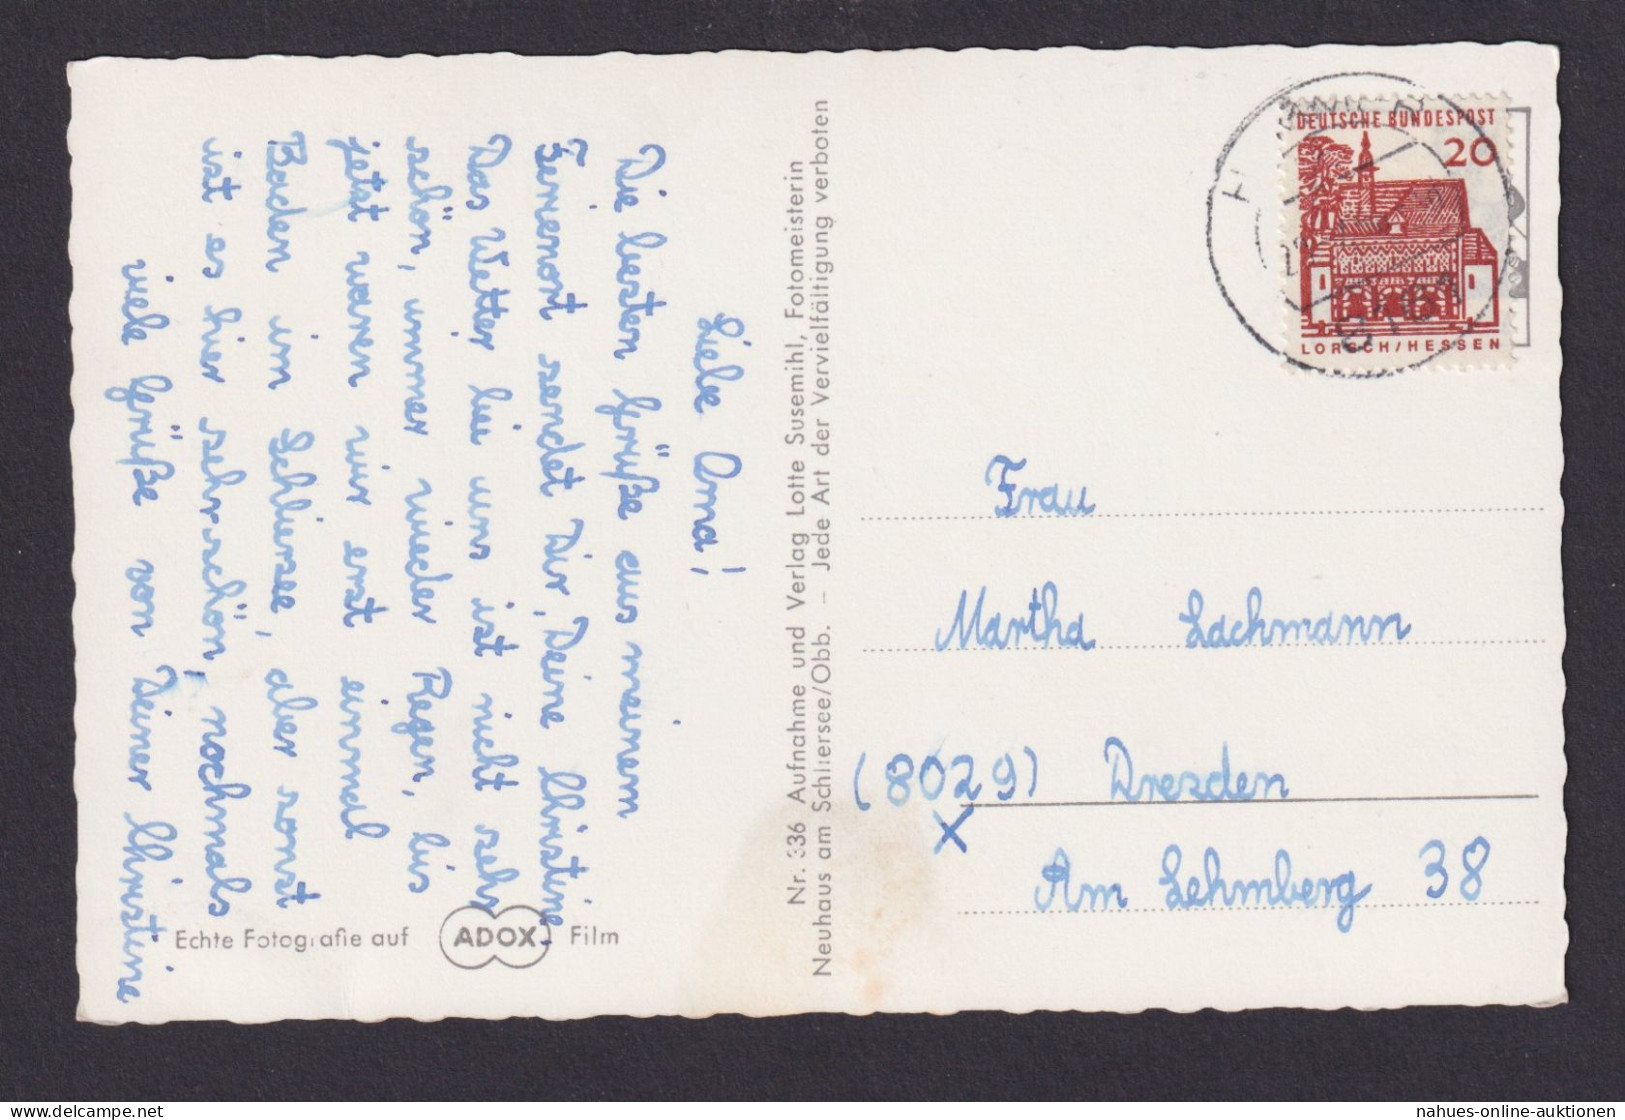 Liebe Oma!
Die besten Grüße aus meinem
Ferienort sendet Dir, Deine Christine.
Das Wetter bei uns ist nicht sehr
schön, immer wieder Regen, bis
jetzt waren wir erst einmal
Baden im Schliersee, aber sonst
ist es hier sehr schön, nochmals
viele Grüße von Deiner Christine
Echte Fotografie auf ADOX Film
Nr. 336 Aufnahme und Verlag Lotte Susemihl, Fotomeisterin
Neuhaus am Schliersee/Obb. – Jede Art der Vervielfältigung verboten
DEUTSCHE BUNDESPOST
20
LORSCH/HESSEN
Frau
Martha Lachmann
(8029) Dresden
X
Am Lehmberg 38
nahues-online-auktionen
www.delcampe.net